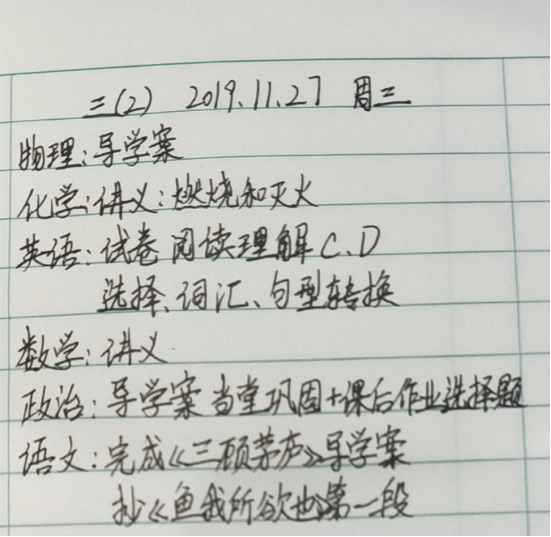 三(2) 2019.11.27 周三
物理:导学案
化学:讲义:燃烧和灭火
英语:试卷 阅读理解 C.D
选择、词汇、句型转换
数学:讲义
政治:导学案 当堂巩固+课后作业选择题
语文:完成《三顾茅庐》导学案
抄《鱼我所欲也》第一段